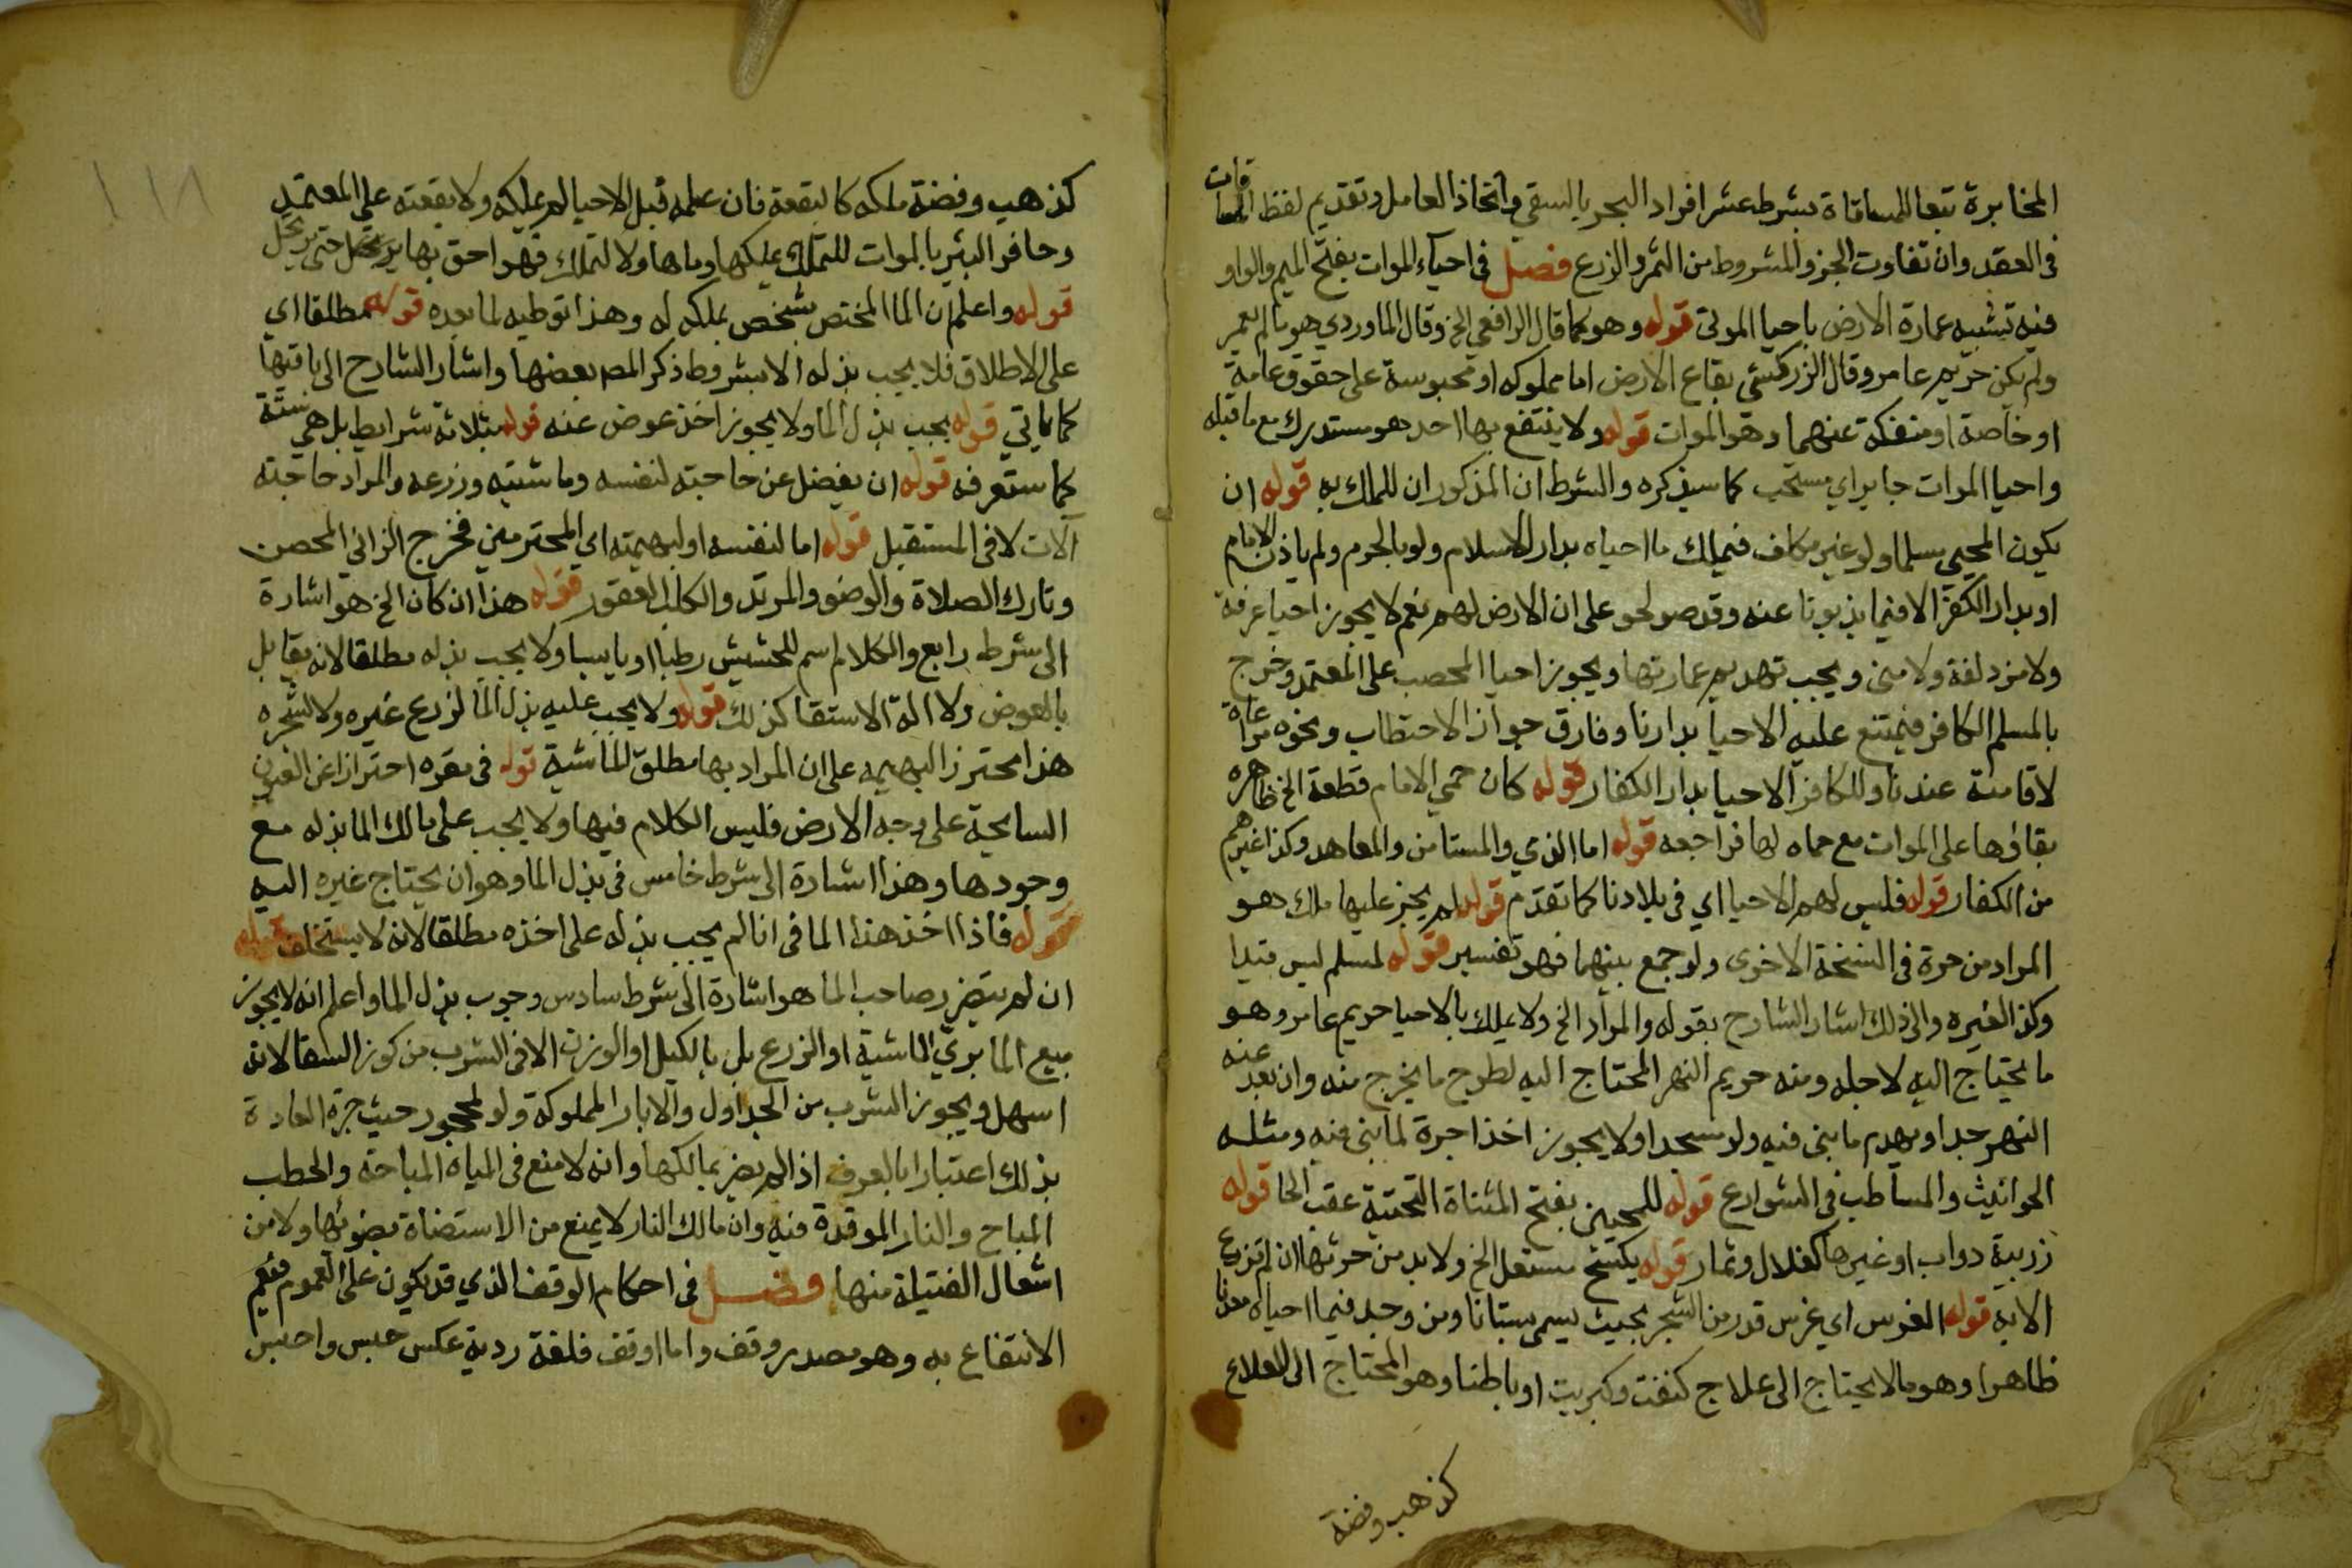 المخابرة تبعا للمساقاة بشرط عشر افراد البحر بالسقي واتخاذ العامل وتقديم لفظ المساقات
في العقد وان تفاوت الجزو المشروط من الثمر والزرع فصل في احياء الموات بفتح الميم والواو
فيه تشبيه عمارة الارض باحيا الموتى قوله وهو كما قال الرافعي الخ وقال الماوردي هو ما لم يعمر
ولم يكن حريم عامر وقال الزركشي بقاع الارض اما مملوكه او محبوسة على حقوق عامة
او خاصة او منفكة عنهما وهو الموات قوله ولا ينتفع بها احد هو مستدرك مع ما قبله
واحيا الموات جايز اي مستحب كما سيذكره والشرطان المذكوران للملك به قوله ان
يكون المحيي مسلما ولو غير مكلف فيملك ما احياه بدار الاسلام ولو بالحرم ولم ياذن الامام
او بدار الكفر الا فيما يذبونا عنه وقد صولحو على ان الارض لهم نعم لا يجوز احيا عرفة
ولا مزدلفة ولا منى ويجب تهديم عمارتها ويجوز احيا المحصب على المعتمد وخرج
بالمسلم الكافر فيمتنع عليه الاحيا بدارنا وفارق جواز الاحتطاب ونحوه مراعاة
لاقامته عندنا وللكافر الاحيا بدار الكفار قوله كان حمي الامام قطعة الخ ظاهره
بقاوها على الموات مع حماه لها فراجعه قوله اما الذمي والمستامن والمعاهد وكذا غيرهم
من الكفار قوله فليس لهم الاحيا اي في بلادنا كما تقدم قوله لم يجز عليها ملك هو
المراد من حرة في النسخة الاخرى ولو جمع بينهما فهو تفسير قوله لمسلم ليس قيدا
وكذا لغيره والى ذلك اشار الشارح بقوله والمراد الخ ولا يملك بالاحيا حريم عامر وهو
ما يحتاج اليه لاجله ومنه حريم النهر المحتاج اليه لطرح ما يخرج منه وان بعد عنه
النهر جدا ويهدم ما بنى فيه ولو مسجدا ولا يجوز اخذ اجرة لما بنى فيه ومثله
الحوانيت والمساطب في الشوارع قوله للمحيين بفتح المثناة التحتية عقب الحا قوله
زريبة دواب او غيرها كغلال وثمار قوله يكسح مستعل الخ ولا بد من حرثها ان لم تزرع
الا به قوله الغرس اي غرس قدر من الشجر بحيث يسمى بستانا ومن وجد فيما احياه معدنا
ظاهرا وهو ما لا يحتاج الى علاج كنفت وكبريت او باطنا وهو المحتاج الى العلاج
كذهب وفضة
١١٨
كذهب وفضة ملكه كالبقعة فان علمه قبل الاحيا لم يملكه ولا بقعته على المعتمد
وحافر البئر بالموات للتملك يملكها وماها ولا لتملك فهو احق بها حتى يرتحل
قوله واعلم ان الما المختص بشخص يملكه له وهذا توطيه لما بعده قوله مطلقا اي
على الاطلاق فلا يجب بذله الا بشروط ذكر المص بعضها واشار الشارح الى باقيها
كما ياتي قوله يجب بذل الما ولا يجوز اخذ عوض عنه قوله بثلاثة شرايط بل هي ستة
كما ستعرفه قوله ان يفضل عن حاجته لنفسه وماشيته وزرعه والمراد حاجته
الان لا في المستقبل قوله اما لنفسه او لبهيمته اي المحترمين فخرج الزاني المحصن
وتارك الصلاة والوضو والمرتد والكلب العقور قوله هذا ان كان الخ هو اشارة
الى شرط رابع والكلا اسم للحشيش رطبا او يابسا ولا يجب بذله مطلقا لانه يقابل
بالعوض ولا الة الاستقا كذلك قوله ولا يجب عليه بذل الما لزرع غيره ولا لشجره
هذا محترز البهيمه على ان المراد بها مطلق الماشية قوله في مقره احترازا عن الغدران
السايحة على وجه الارض فليس الكلام فيها ولا يجب على مالك الما بذله مع
وجودها وهذا اشارة الى شرط خامس في بذل الما وهو ان يحتاج غيره اليه
قوله فاذا اخذ هذا الما في انا لم يجب بذله على اخذه مطلقا لانه لا يستخلف قوله
ان لم يتضرر صاحب الما هو اشارة الى شرط سادس وجوب بذل الما واعلم انه لا يجوز
بيع الما بري الماشية او الزرع بل بالكيل او الوزن الا في الشرب من كوز السقا لانه
اسهل ويجوز الشرب من الجداول والابار المملوكة ولو لمحجور حيث جرة العادة
بذلك اعتبارا بالعرف اذا لم يضر بمالكها وانه لا منع في المياه المباحة والحطب
المباح والنار الموقدة فيه وان مالك النار لا يمنع من الاستضاة بضوئها ولا من
اشعال الفتيلة منها فصل في احكام الوقف الذي قد يكون على العموم فيعم
الانتفاع به وهو مصدر وقف واما اوقف فلغة ردية عكس حبس واحبس